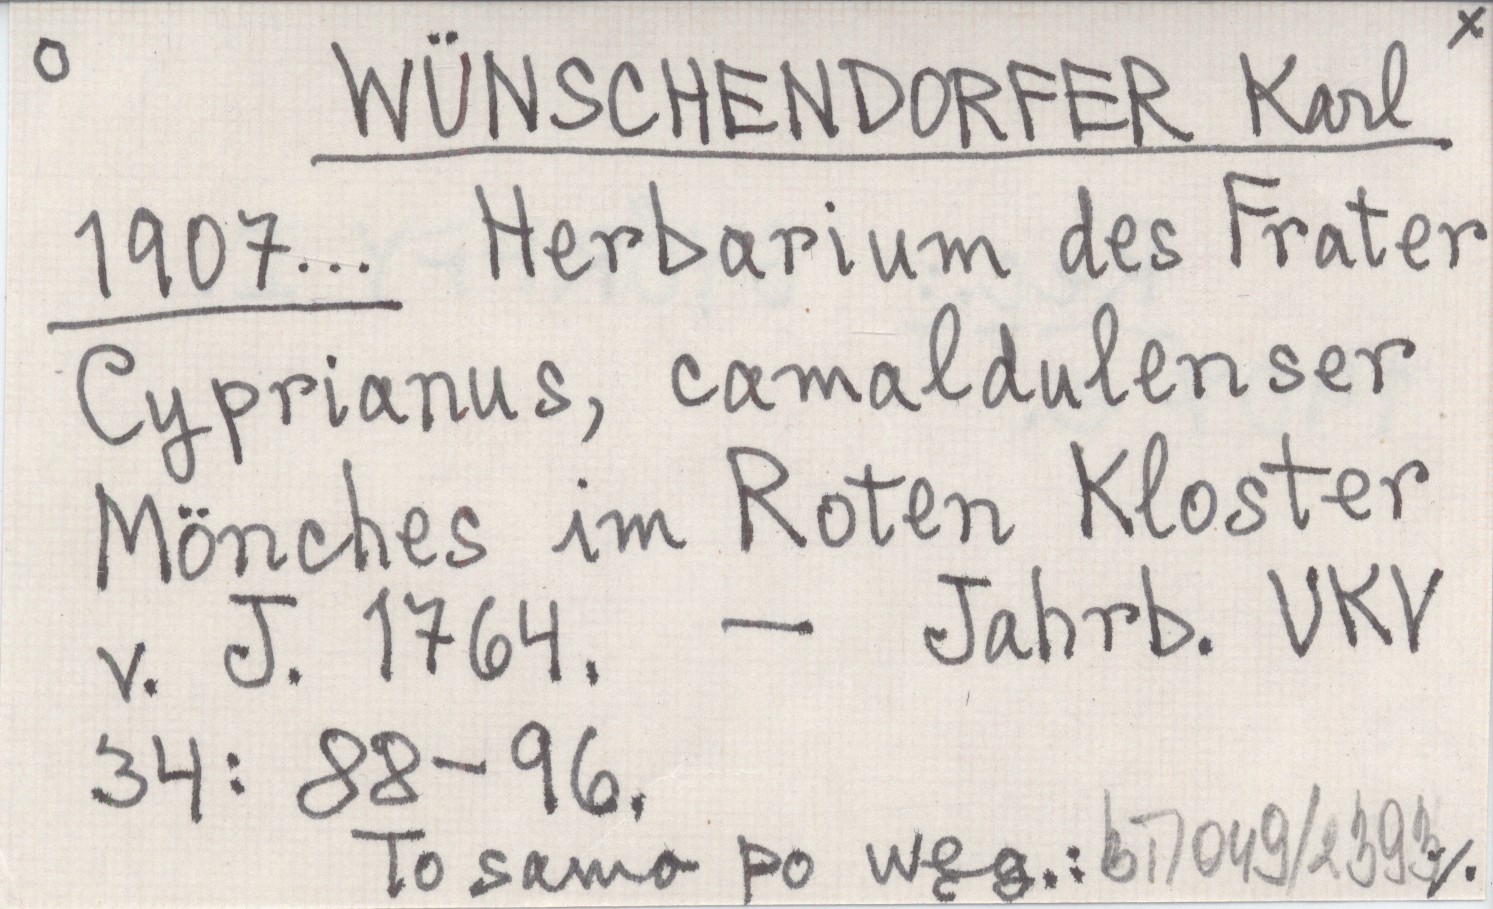 o WÜNSCHENDORFER Karl x
1907... Herbarium des Frater
Cyprianus, camaldulenser
Mönches im Roten Kloster
v. J. 1764. — Jahrb. VKV
34: 88-96.
To samo po węg.: ./.